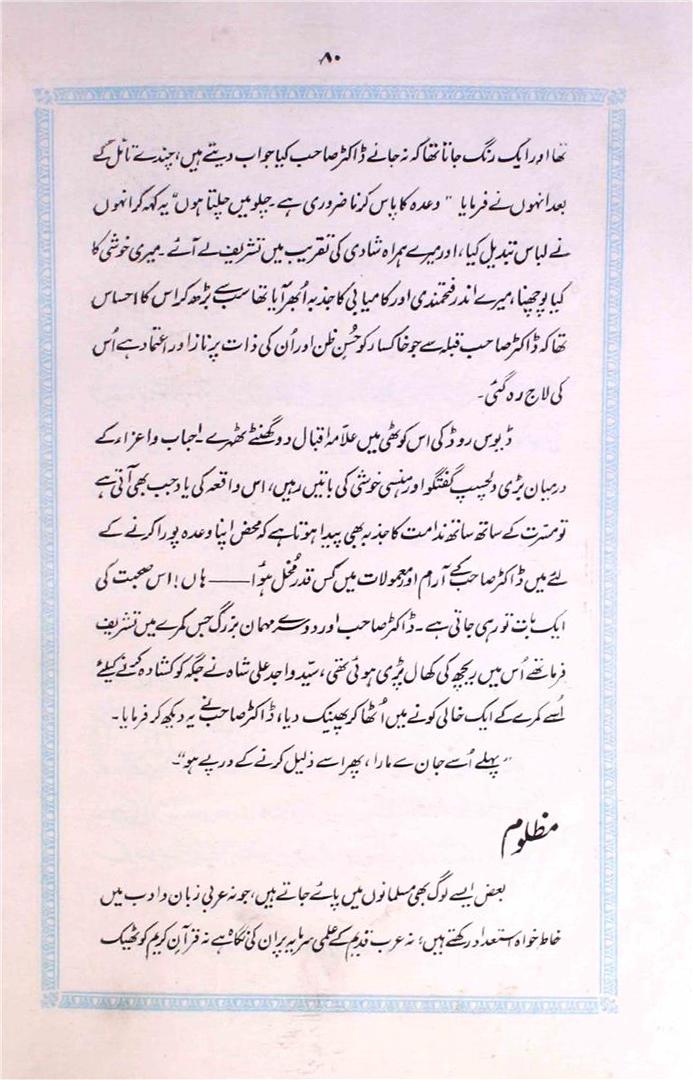 ۸۰
تھا اور ایک رنگ جاتا تھا کہ نہ جانے ڈاکٹر صاحب کیا جواب دیتے ہیں، چندے تامل کے
بعد انہوں نے فرمایا "وعدہ کا پاس کرنا ضروری ہے۔ چلو میں چلتا ہوں" یہ کہہ کر انہوں
نے لباس تبدیل کیا، اور میرے ہمراہ شادی کی تقریب میں تشریف لے آئے۔ میری خوشی کا
کیا پوچھنا، میرے اندر فتحمندی اور کامیابی کا جذبہ اُبھر آیا تھا سب سے بڑھ کر اس کا احساس
تھا کہ ڈاکٹر صاحب قبلہ سے جو خاکسار کو حُسنِ ظن اور اُن کی ذات پر ناز اور اعتماد ہے اُس
کی لاج رہ گئی۔
ڈیوس روڈ کی اس کوٹھی میں علاّمہ اقبال دو گھنٹے ٹھہرے۔ احباب و اعزاء کے
درمیان بڑی دلچسپ گفتگو اور ہنسی خوشی کی باتیں رہیں، اس واقعہ کی یاد جب بھی آتی ہے
تو مسرت کے ساتھ ساتھ ندامت کا جذبہ بھی پیدا ہوتا ہے کہ محض اپنا وعدہ پورا کرنے کے
لئے میں ڈاکٹر صاحب کے آرام اور معمولات میں کس قدر مُخل ہوُا —— ہاں! اس صحبت کی
ایک بات تو رہی جاتی ہے۔ ڈاکٹر صاحب اور دوسرے مہمان بزرگ جس کمرے میں تشریف
فرما تھے اُس میں ریچھ کی کھال پڑی ہوئی تھی، سیّد واجد علی شاہ نے جگہ کو کشادہ کرنے کیلئے
اُسے کمرے کے ایک خالی کونے میں اُٹھا کر پھینک دیا، ڈاکٹر صاحب نے یہ دیکھ کر فرمایا۔
"پہلے اُسے جان سے مارا، پھر اسے ذلیل کرنے کے درپے ہو"۔
مظلوم
بعض ایسے لوگ بھی مسلمانوں میں پائے جاتے ہیں، جو نہ عربی زبان و ادب میں
خاطر خواہ استعداد رکھتے ہیں؛ نہ عرب قدیم کے علمی سرمایہ پر ان کی نگاہ ہے نہ قرآنِ کریم کو ٹھیک